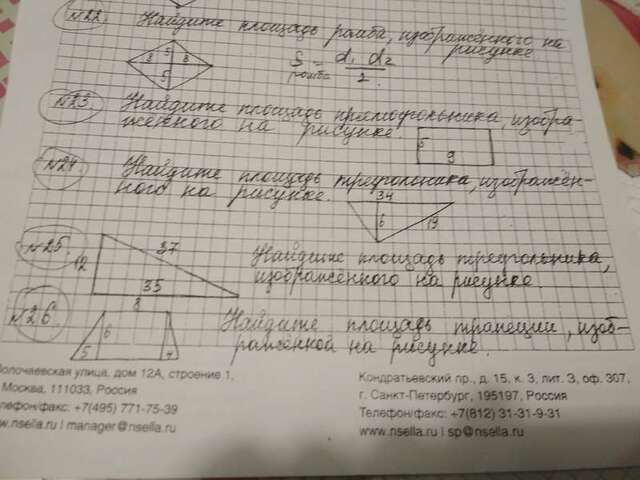 №22. Найдите площадь ромба, изображённого на
рисунке
8 5 8
5
S ромба = d₁ d₂
2
№23. Найдите площадь прямоугольника, изобра-
жённого на рисунке.
5
9
№24. Найдите площадь треугольника, изображён-
ного на рисунке.
34
6 19
№25.
12 37
35
Найдите площадь треугольника,
изображённого на рисунке.
№26.
8
6
5 4
Найдите площадь трапеции, изоб-
ражённой на рисунке.
олочаевская улица, дом 12А, строение 1,
Москва, 111033, Россия
лефон/факс: +7(495) 771-75-39
w.nsella.ru I manager@nsella.ru
Кондратьевский пр., д. 15, к. 3, лит. З, оф. 307,
г. Санкт-Петербург, 195197, Россия
Телефон/факс: +7(812) 31-31-9-31
www.nsella.ru I sp@nsella.ru